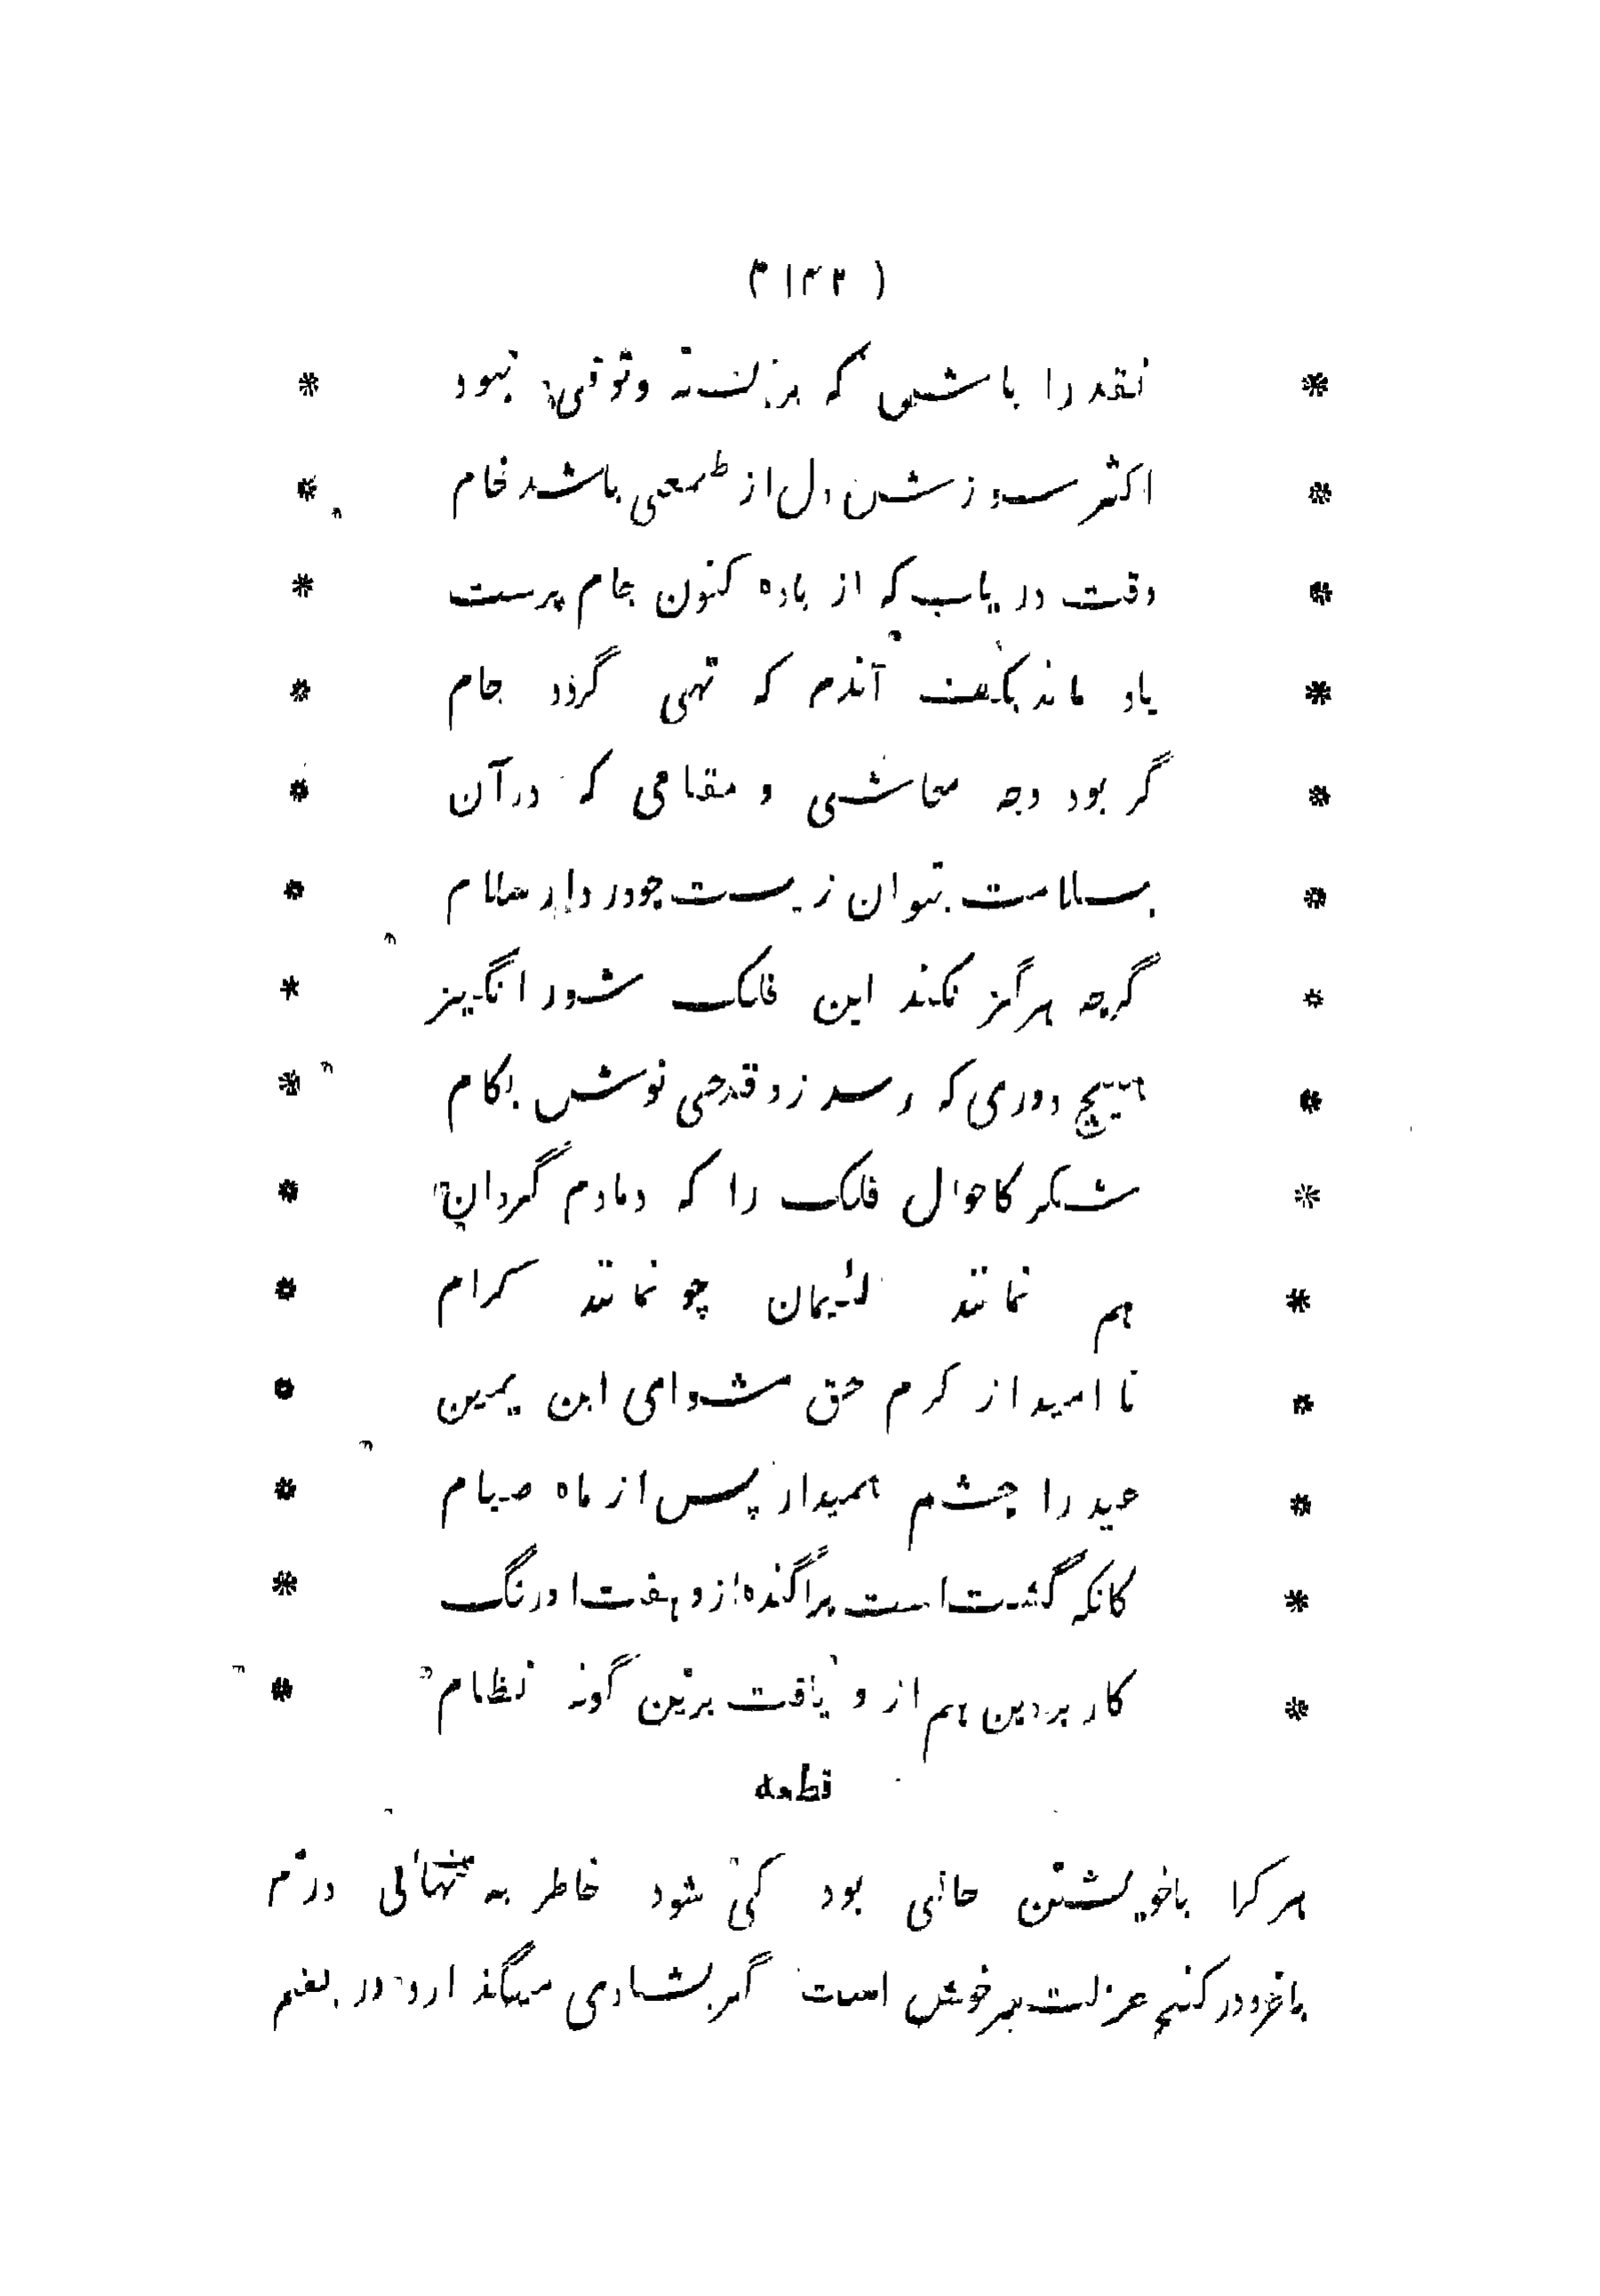 ( ۱۴۲ )
* نقد را باش که بر نسیه وثوقی نبود *
* اکثر سوزش دل از طمعی باشد خام *
* وقت دریاب که از باده کنون جام پرست *
* باد ماند بکفت آندم که تهی گردد جام *
* گر بود وجه معاشی و مقامی که درآن *
* بسلامت بتوان زیست چو در دار سلام *
* گرچه هرگز نکند این فلک شور انگیز *
* هیچ دوری که رسد زو قدحی نوش بکام *
* شکر کاحوال فلک را که دمادم گردان *
* هم نمانند لئیمان چو نمانند کرام *
* نا امید از کرم حق مشو ای ابن یمین *
* عید را چشم همیدار پس از ماه صیام *
* کانکه گشت است پراگنده ازو هفت اورنگ *
* کار پروین هم از و یافت برین گونه نظام *
قطعه
هر کرا باخویشتن حالی بود کی شود خاطر به تنهائی درم
باخرد در کنج عزلت سر خوش است گر بشادی میگذارد ور بغم